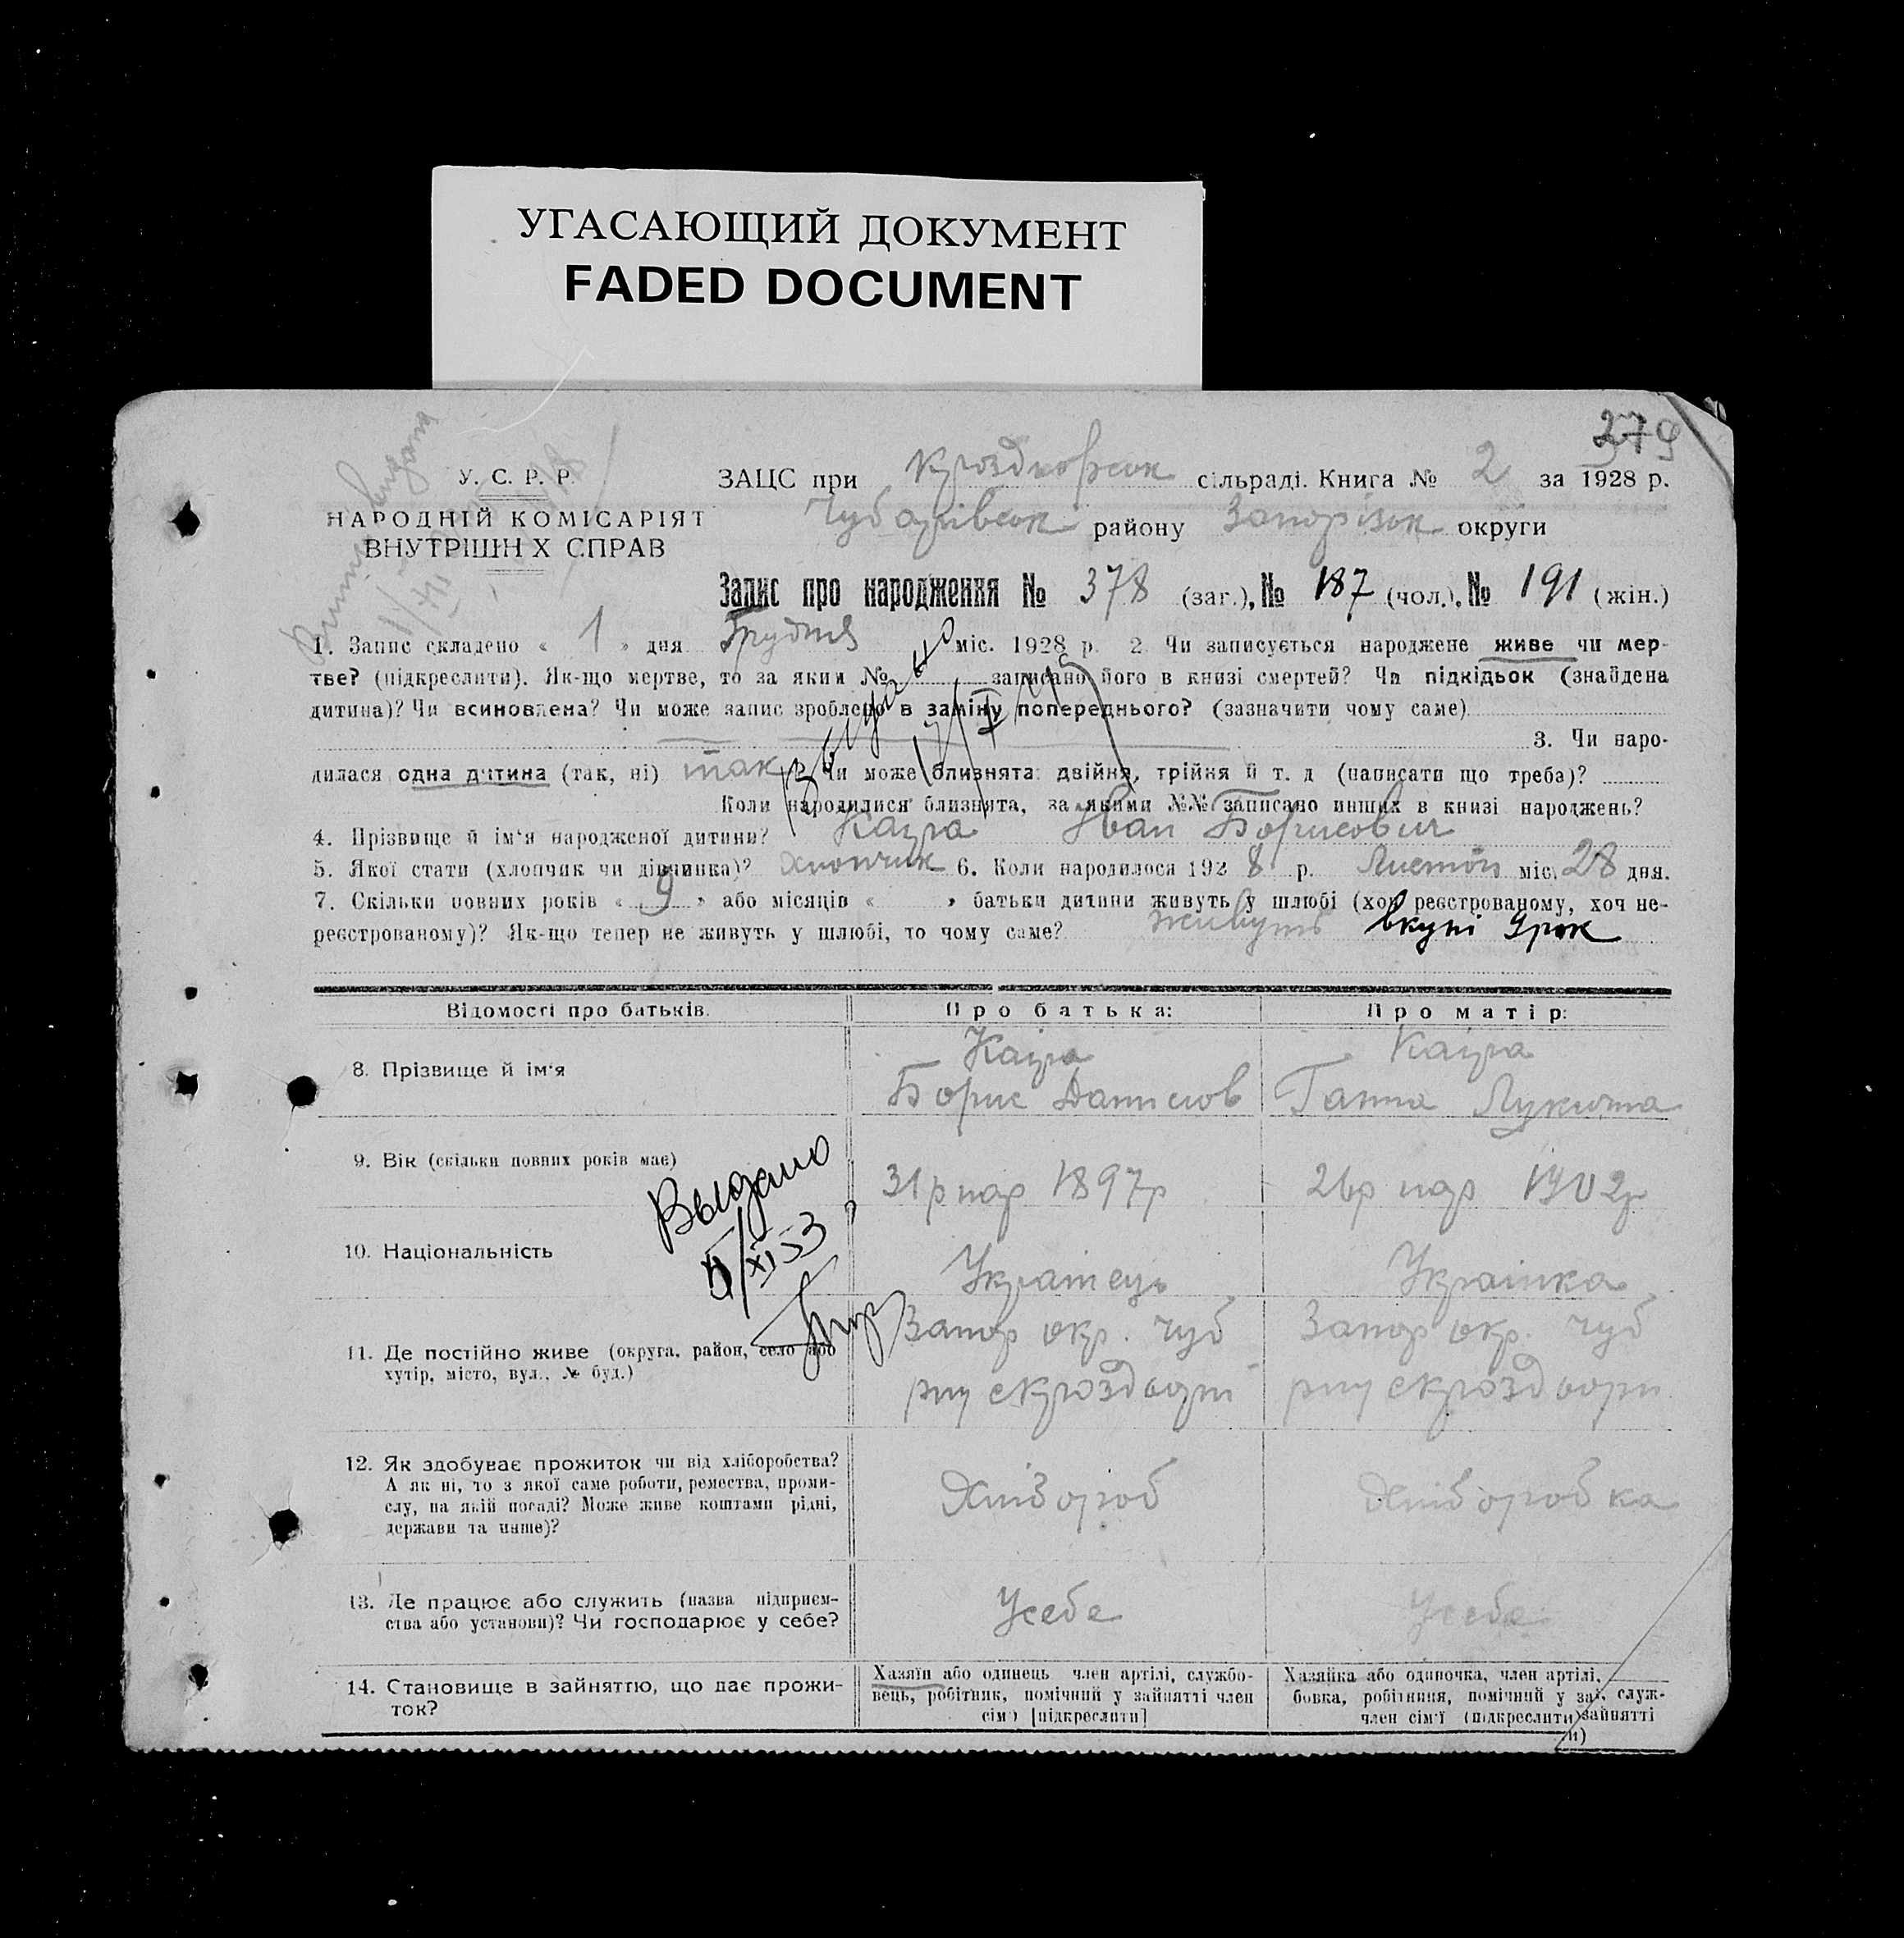 УГАСАЮЩИЙ ДОКУМЕНТ
FADED DOCUMENT
279
У. С. Р. Р.
НАРОДНІЙ КОМІСАРІЯТ
ВНУТРІШН Х СПРАВ
ЗАЦС при сільраді. Книга № 2 за 1928 р.
Чубарівськ району Запорізьк округи
Запис про народження № 378 (заг.), № 187 (чол.), № 191 (жін.)
1. Запис складено « 1 » дня Грудня міс. 1928 р. 2. Чи записується народжене живе чи мер-
тве? (підкреслити). Як-що мертве, то за яким № записано його в книзі смертей? Чи підкідьок (знайдена
дитина)? Чи всиновлена? Чи може запис зроблено в заміну попереднього? (зазначити чому саме)
3. Чи наро-
дилася одна дитина (так, ні) так Чи може близнята: двійня, трійня й т. д (написати що треба)?
Коли народилися близнята, за якими №№ записано инших в книзі народжень?
4. Прізвище й ім'я народженої дитини? Каіра Іван Борисович
5. Якої стати (хлопчик чи дівчинка)? хлопчик 6. Коли народилося 192 8 р. Листоп міс. 28 дня.
7. Скільки повних років « 9 » або місяців « » батьки дитини живуть у шлюбі (хоч реєстрованому, хоч не-
реєстрованому)? Як-що тепер не живуть у шлюбі, то чому саме? живуть вкупі 9 рок
Відомості про батьків. Про батька: Про матір:
8. Прізвище й ім'я
Каіра
Борис Данилов
Каіра
Ганна Лукична
9. Вік (скільки повних років має)
31 р нар 1897р
26р нар 1902р
Выдано
XI 53
10. Національність
Українець
Українка
11. Де постійно живе (округа, район, село або
хутір, місто, вул., № буд.)
Запор окр. Чуб
Запор окр. Чуб
12. Як здобуває прожиток чи від хліборобства?
А як ні, то з якої саме роботи, ремества, проми-
слу, на якій посаді? Може живе коштами рідні,
держави та инше)?
Хлібороб
Хліборобка
13. Де працює або служить (назва підприєм-
ства або установи)? Чи господарює у себе?
Усебе
Усебе
14. Становище в зайняттю, що дає прожи-
ток?
Хазяїн або одинець член артілі, службо-
вець, робітник, помічний у зайнятті член
сім'ї [підкреслити]
Хазяйка або одиночка, член артілі,
бовка, робітниця, помічний у заї, служ-
член сім'ї (підкреслити) зайнятті